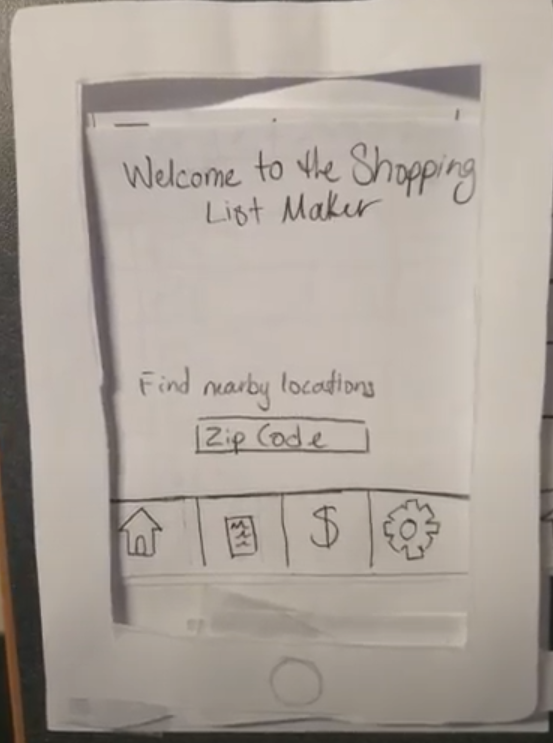 Welcome to the Shopping
List Maker
Find nearby locations
Zip Code
$